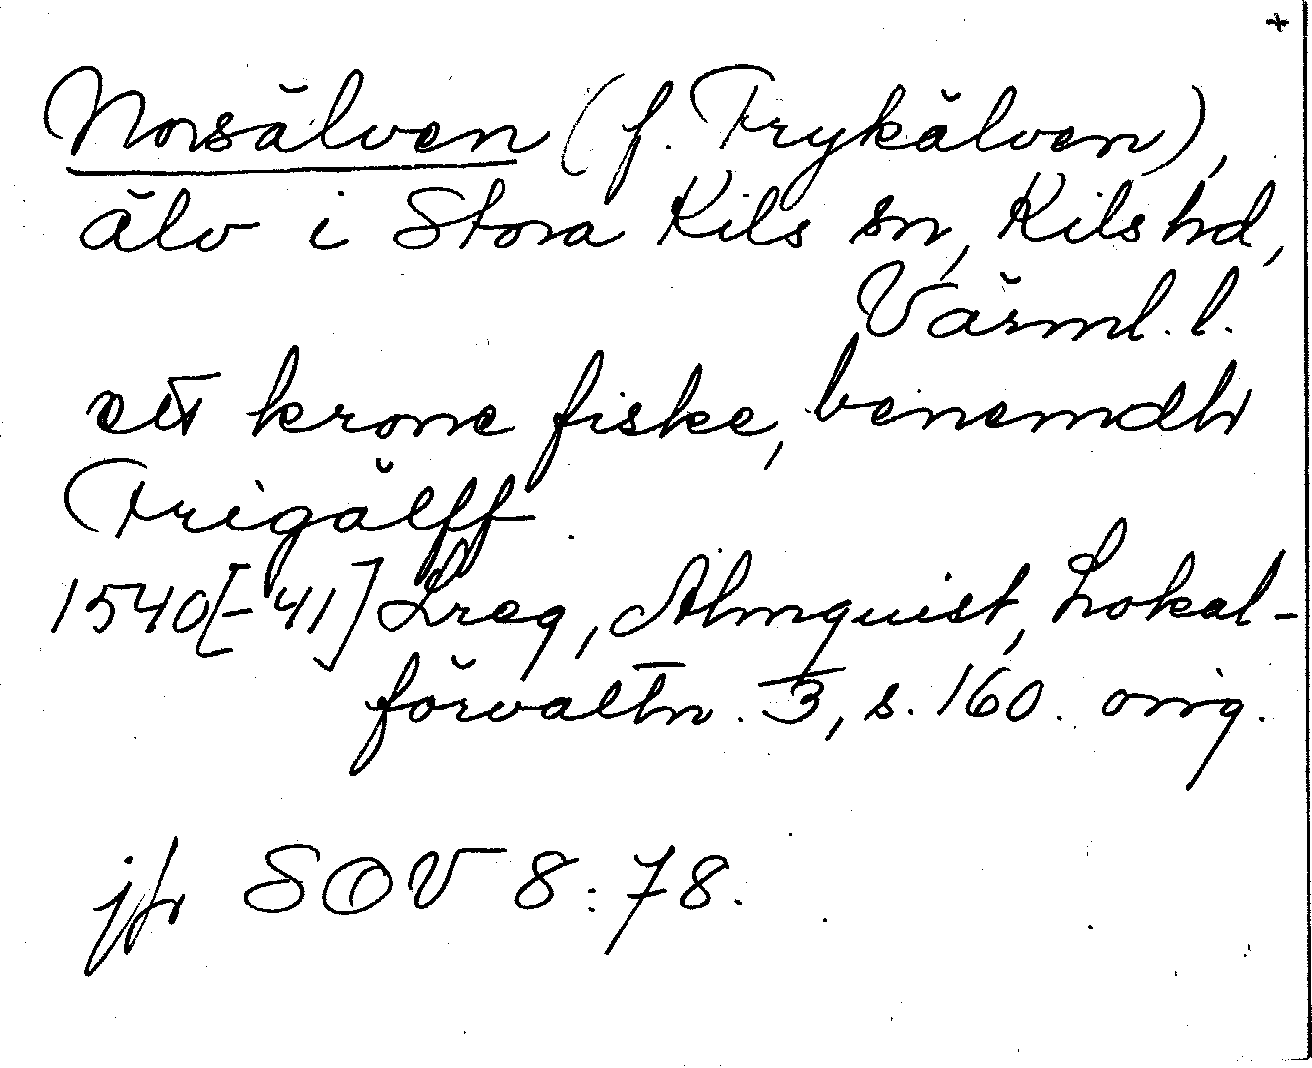 +
Norsälven (f. Frykälven),
älv i Stora Kils sn, Kils hd,
Värml. l.
ett krone fiske, benemdh
Frigälff
1540[-41] Lreg, Almquist, Lokal-
förvaltn. 3, s. 160. orig.
jfr SOV 8:78.